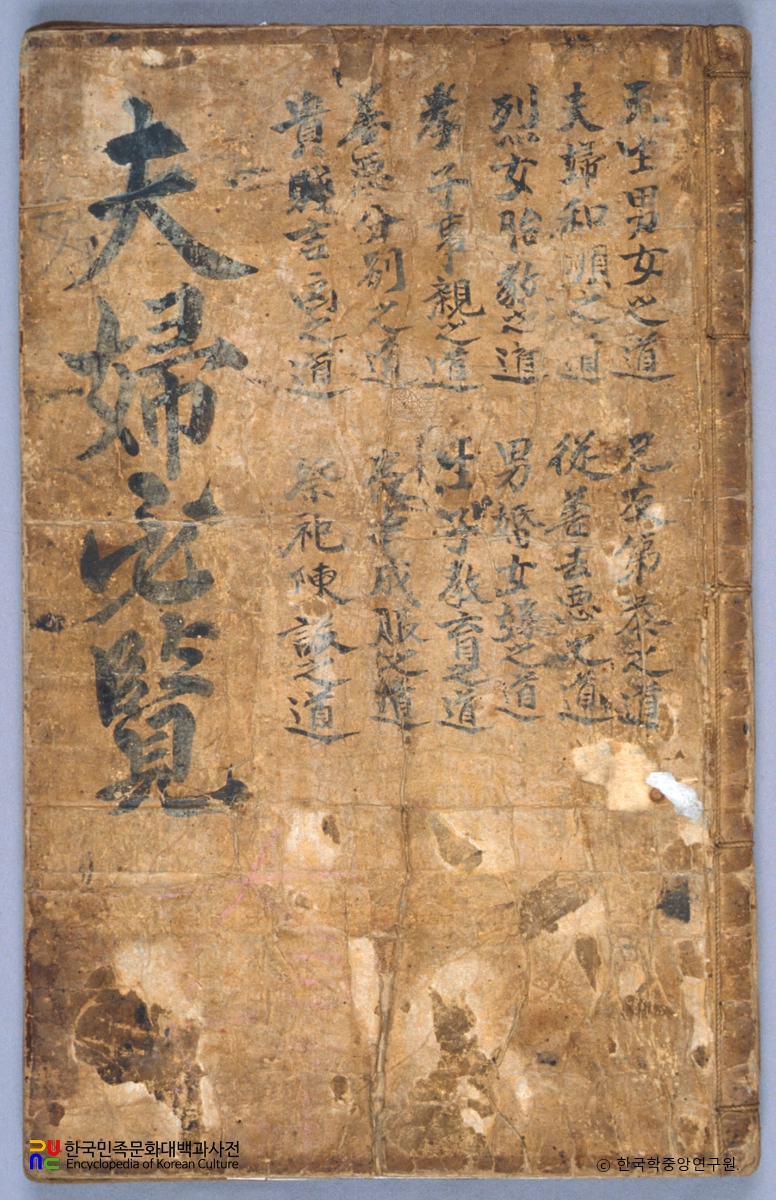 天生男女之道 兄友弟恭之道
夫婦和順之道 從善去惡之道
烈女胎敎之道 男婚女嫁之道
孝子事親之道 生子敎育之道
善惡分別之道 成服之道
貴賤吉凶之道 祭祀陳設之道
夫婦必覽
한국민족문화대백과사전
Encyclopedia of Korean Culture
© 한국학중앙연구원